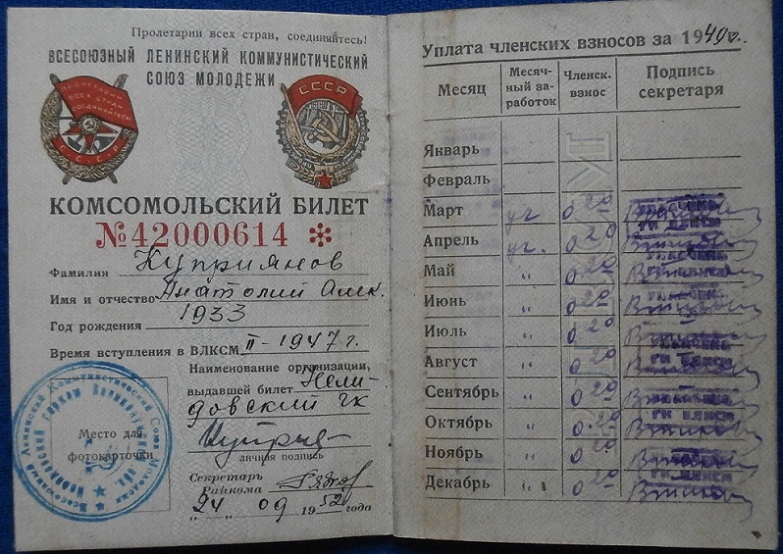 Пролетарии всех стран, соединяйтесь!
ВСЕСОЮЗНЫЙ ЛЕНИНСКИЙ КОММУНИСТИЧЕСКИЙ
СОЮЗ МОЛОДЕЖИ
ПРОЛЕТАРИИ
ВСЕХ СТРАН
СОЕДИНЯЙТЕСЬ
С.С.С.Р.
СССР
КОМСОМОЛЬСКИЙ БИЛЕТ
№42000614 *
Фамилия Куприянов
Имя и отчество Анатолий Алек.
Год рождения 1933
Время вступления в ВЛКСМ II-1947 г.
Наименование организации,
выдавшей билет Нели-
довский ГК
Место для
фотокарточки
личная подпись
Секретарь
Райкома
"24" 09 1952 года
Уплата членских взносов за 1949 г.
Месяц Месяч-ный за-работок Членск. взнос Подпись секретаря
Январь
Февраль
Март уч 0 20
Апрель уч. 0 20
Май " 0 20
Июнь " 0 20
Июль " 0 20
Август " 0 20
Сентябрь " 0 20
Октябрь " 0 20
Ноябрь " 0 20
Декабрь " 0 20